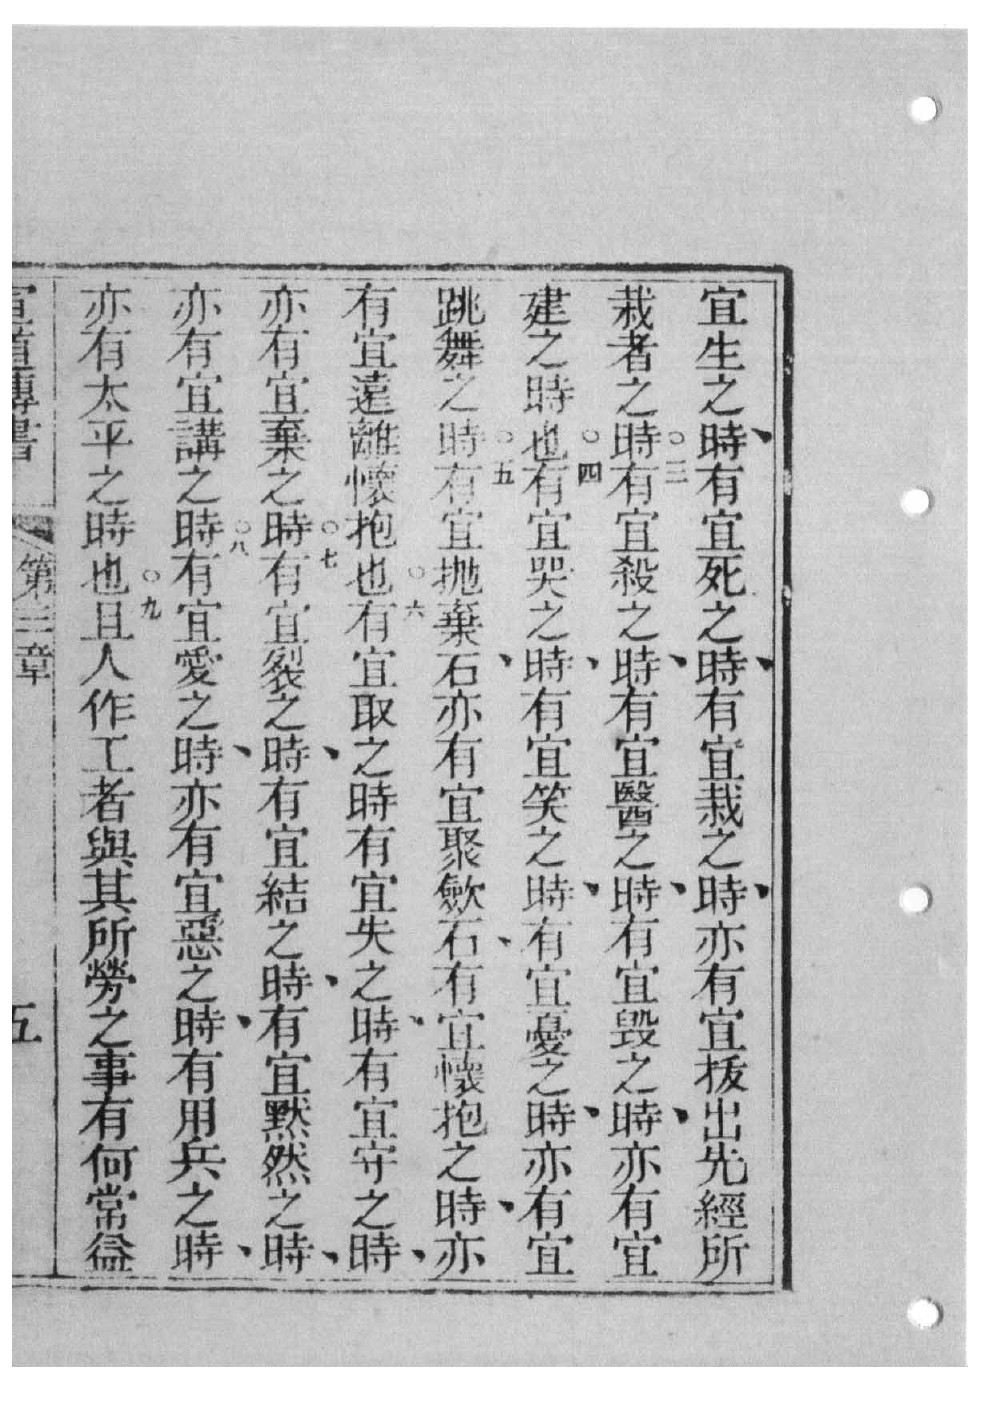 宜生之時、有宜死之時、有宜栽之時、亦有宜拔出先經所
栽者之時○三有宜殺之時、有宜醫之時、有宜毀之時、亦有宜
建之時也○四有宜哭之時、有宜笑之時、有宜憂之時、亦有宜
跳舞之時○五有宜拋棄石、亦有宜聚歛石、有宜懷抱之時、亦
有宜遠離懷抱也○六有宜取之時有宜失之時、有宜守之時、
亦有宜棄之時○七有宜裂之時、有宜結之時、有宜默然之時、
亦有宜講之時○八有宜愛之時、亦有宜惡之時、有用兵之時、
亦有太平之時也○九且人作工者與其所勞之事有何常益
宣道傳書 第三章 五